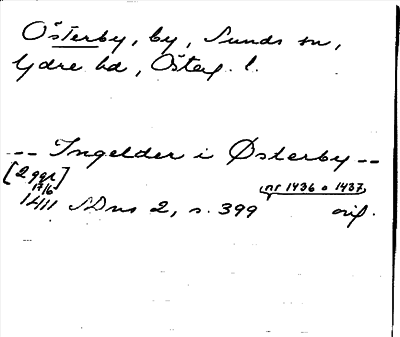 Österby, by, Sunds sn,
Ydre hd, Östergl. l.
--- Ingelder i Østerby --
[2 ggr]
17/6 nr 1436 o 1437
1411 SDns 2, s. 399 orig.